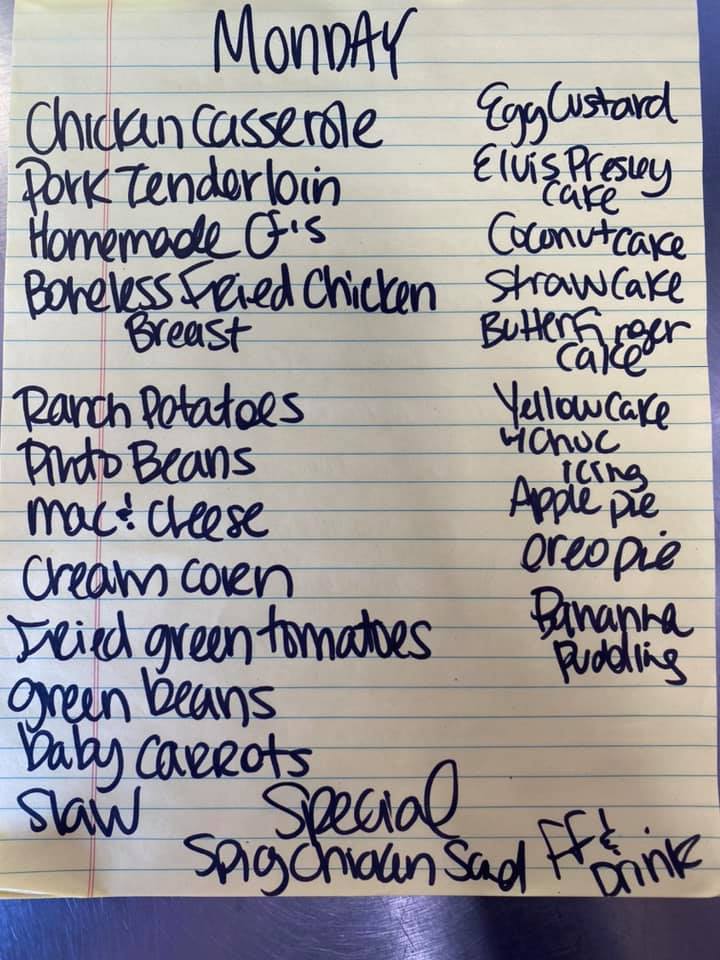 MONDAY
Chicken Casserole
Pork Tenderloin
Homemade CF's
Boneless Fried Chicken
Breast
Ranch Potatoes
Pinto Beans
Mac & Cheese
Cream Corn
Fried green tomatoes
green beans
baby carrots
Slaw
Egg Custard
Elvis Presley
Cake
Coconut cake
Straw Cake
Butterfinger
Cake
Yellow Cake
w/ Choc
icing
Apple pie
Oreo pie
Bananna
Pudding
Special
Chicken Sand FF &
Drink